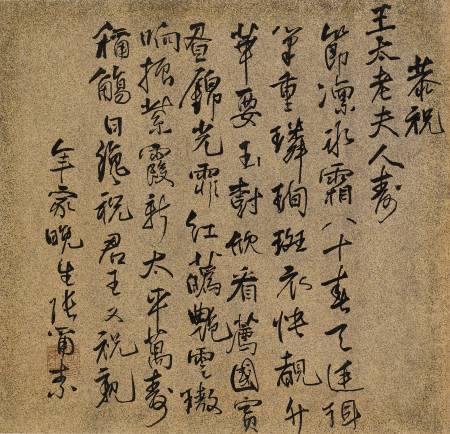 恭祝
王太老夫人壽
節凜冰霜八十春天珥
筆重璘珣斑衣快覩升
華要玉樹欣看薦國賓
晝錦光霏紅藹艷雲璈
响振紫霞新太平萬壽
稱觴日纔祝君王又祝親
年家晚生張爾素